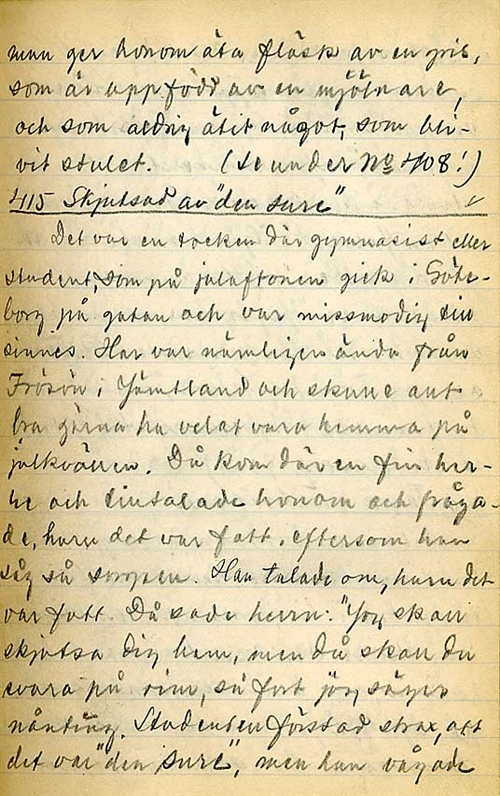 man ger honom äta fläsk av en gris,
som är uppfödd av en mjölnare,
och som aldrig ätit något, som bli-
vit stulet. (Se under No 408!)
415 Skjutsad av "den sure"
Det var en tocken där gymnasist eller
student, som på julaftonen gick i Göte-
borg på gatan och var missmodig till
sinnes. Han var nämligen ända från
Frösön i Jämtland och skulle allt
bra gärna ha velat vara hemma på
julkvällen. Då kom där en fin her-
re och tilltalade honom och fråga-
de, huru det var fatt, eftersom han
såg så sorgsen. Han talade om, huru det
var fatt. Då sade herrn: "Jag skall
skjutsa dig hem, men du skall du
svara på rim, så fort jag säger
nånting. Studenten förstod strax, att
det var "den sure", men han vågade